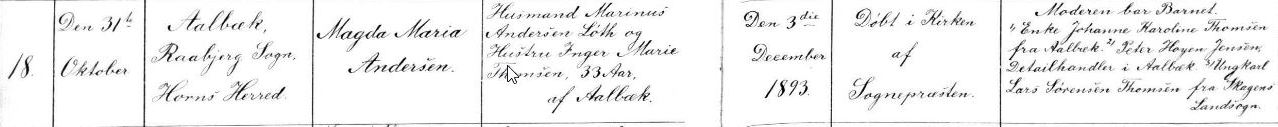 18.
Den 31te
Oktober
Aalbæk,
Raabjerg Sogn,
Horns Herred.
Magda Maria
Andersen.
Husmand Marinus
Andersen Löth og
Hustru Inger Marie
Thomsen, 33 Aar,
af Aalbæk.
Den 3die
December
1893.
Döbt i Kirken
af
Sognepræsten.
Moderen bar Barnet.
1) Enke Johanne Karoline Thomsen
fra Aalbæk. 2) Peter Høyen Jensen,
Detailhandler i Aalbæk 3) Ungkarl
Lars Sörensen Thomsen fra Skagens
Landsogn.